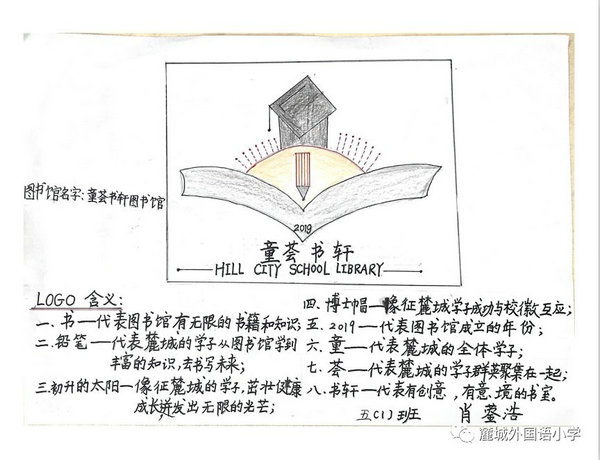 图书馆名字:童荟书轩图书馆
2019
童荟书轩
HILL CITY SCHOOL LIBRARY
LOGO 含义:
一.书—代表图书馆有无限的书籍和知识;
二.铅笔—代表麓城的学子从图书馆学到
丰富的知识,去书写未来;
三.初升的太阳—像征麓城的学子,茁壮健康
成长并发出无限的光芒;
四.博士帽—像征麓城学子成功与校徽互应;
五.2019—代表图书馆成立的年份;
六.童—代表麓城的全体学子;
七.荟—代表麓城的学子群英聚集在一起;
八.书轩—代表有创意,有意境的书室。
五(1)班 肖蓥浩
麓城外国语小学